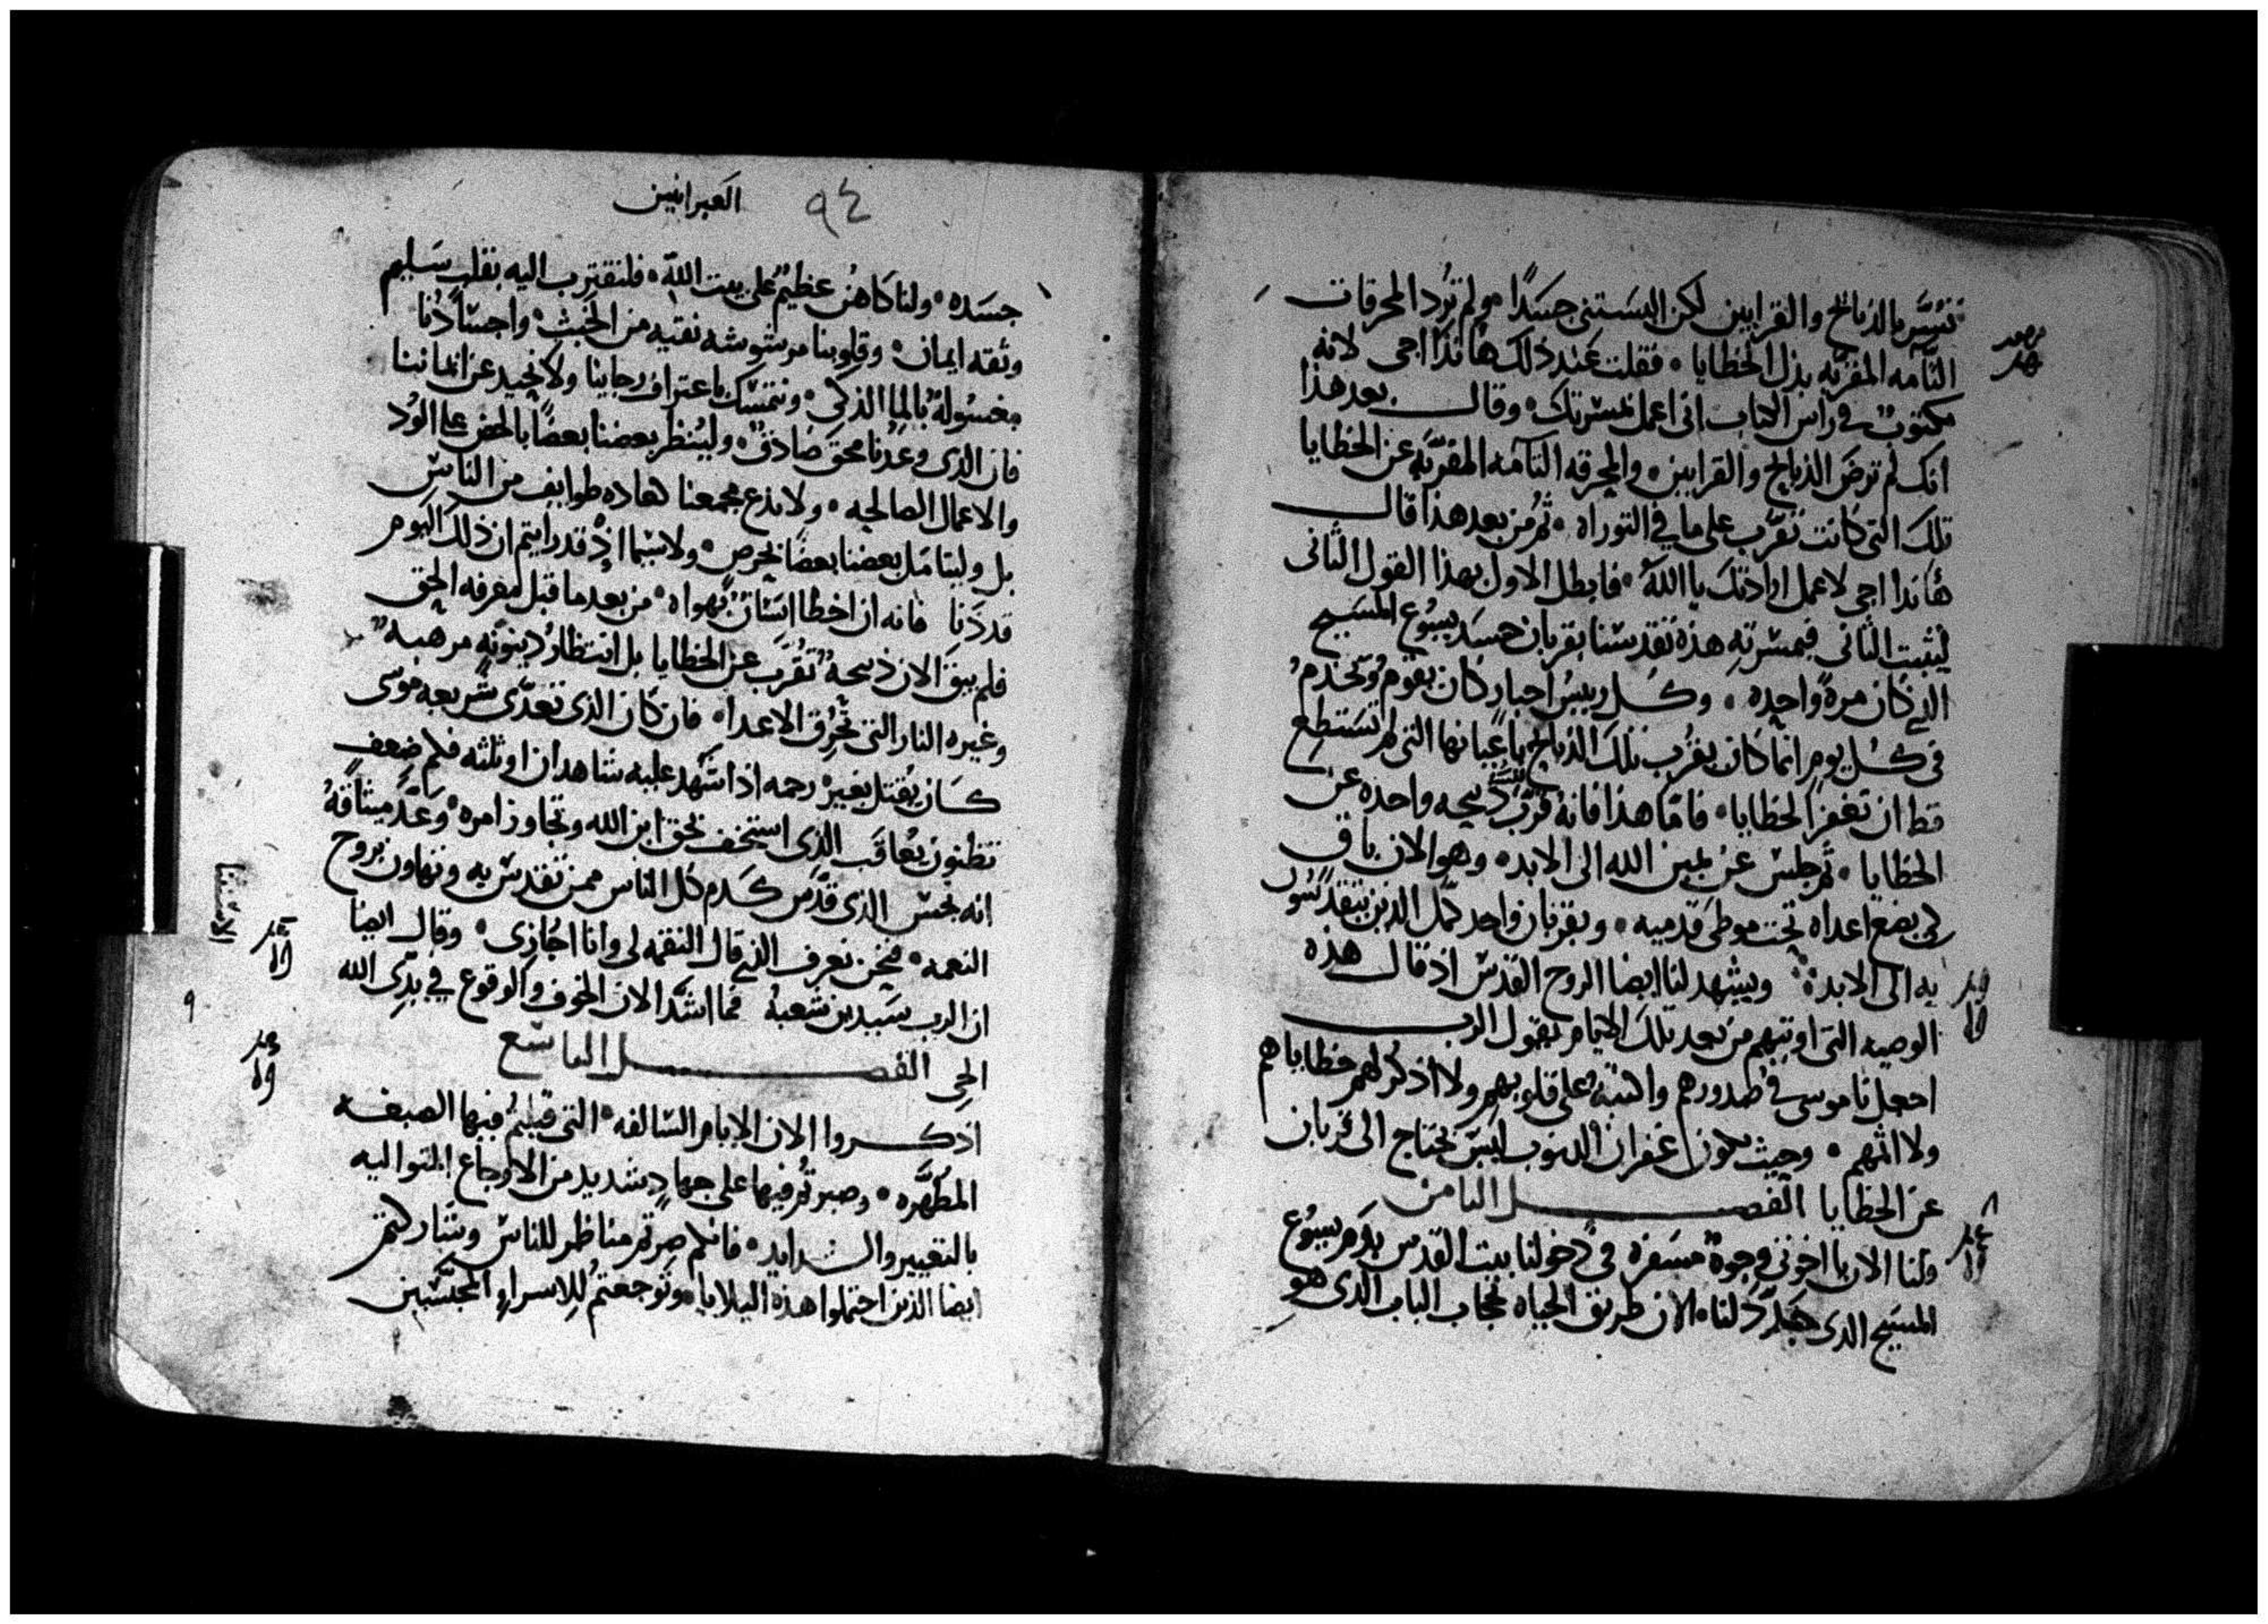 تسر بالذبائح والقرابين لكن البستني جسدًا ولم ترد المحرقات
التامه المقربه بدل الخطايا فقلت عند ذلك هانذا اجي لانه
مكتوب في راس الكتاب اني اعمل مسرتك وقال بعد هذا
انك لم ترض الذبايح والقرابين والمحرقه التامه المقربه عن الخطايا
تلك التي كانت تقرب على ما في التوراه ثم من بعد هذا قال
هانذا اجي لاعمل ارادتك يا الله فابطل الاول بهذا القول الثاني
ليثبت الثاني فبمسرته هذه تقدسنا بقربان جسد يسوع المسيح
الذي كان مرة واحده وكل رييس احبار كان يقوم ويخدم
في كل يوم انما كان يقرب تلك الذبايح باعيانها التي لم تستطع
قط ان تغفر الخطايا فاما هذا فانه قرب ذبيحه واحده عن
الخطايا ثم جلس عن يمين الله الى الابد وهو الان باق
كي يضع اعداه تحت موطى قدميه وبقربان واحد كمل الذين يتقدسون
به الى الابد ويشهد لنا ايضا الروح القدس اذ قال هذه
الوصيه التي اوتيهم من بعد تلك الايام يقول الرب
اجعل ناموسي في صدورهم واكتبه على قلوبهم ولا اذكر لهم خطاياهم
ولا اثمهم وحيث يكون غفران الذنوب ليس يحتاج الى قربان
عن الخطايا الفصل الثامن
ولنا الان يا اخوتي وجوة مسفرة في دخولنا بيت القدس بدم يسوع
المسيح الذي جدد لنا الان طريق الحياه بحجاب الباب الذي هو
العبرانيين ٩٤
جسده ولنا كاهن عظيم على بيت الله فلنقترب اليه بقلب سليم
وثقه ايمان وقلوبنا مرشوشه نقيه من الخبث واجسادنا
مغسولة بالما الذكي ونتمسك باعتراف رجاينا ولا نحيد عن ايماننا
فان الذي وعدنا محق صادق ولينظر بعضنا بعضا بالحض على الود
والاعمال الصالحه ولا ندع مجمعنا كعاده طوايف من الناس
بل وليتامل بعضنا بعضا بحرص ولاسيما اذ قد رايتم ان ذلك اليوم
قد دنا فانه ان اخطا انسان بهواه من بعد ما قبل معرفه الحق
فلم يبق الان ذبيحة تقرب عن الخطايا بل انتظار دينونه مرهبه
وغيره النار التي تحرق الاعدا فان كان الذي تعدى شريعه موسى
كان يقتل بغير رحمه اذا شهد عليه شاهدان او ثلثه فلم ضعف
تظنون يعاقب الذي استخف بحق ابن الله وتجاوز امره وعد ميثاقه
انه نجس الذي قدس كدم كل الناس ممن تقدس به وتهاون بروح
النعمه فنحن نعرف الذي قال النقمه لي وانا اجازي وقال ايضا
ان الرب سيدين شعبه فما اشد الان الخوف والوقوع في يدى الله
الحي الفصل التاسع
اذكروا الان الايام السالفه التي قبلتم فيها الصبغه
المطهره وصبرتم فيها على جهاد شديد من الاوجاع المتواليه
بالتعيير والشدايد فانكم صرتم مناظر للناس وشاركتم
ايضا الذين احتملوا هذه البلايا وتوجعتم للاسراء المحتبسين
٩